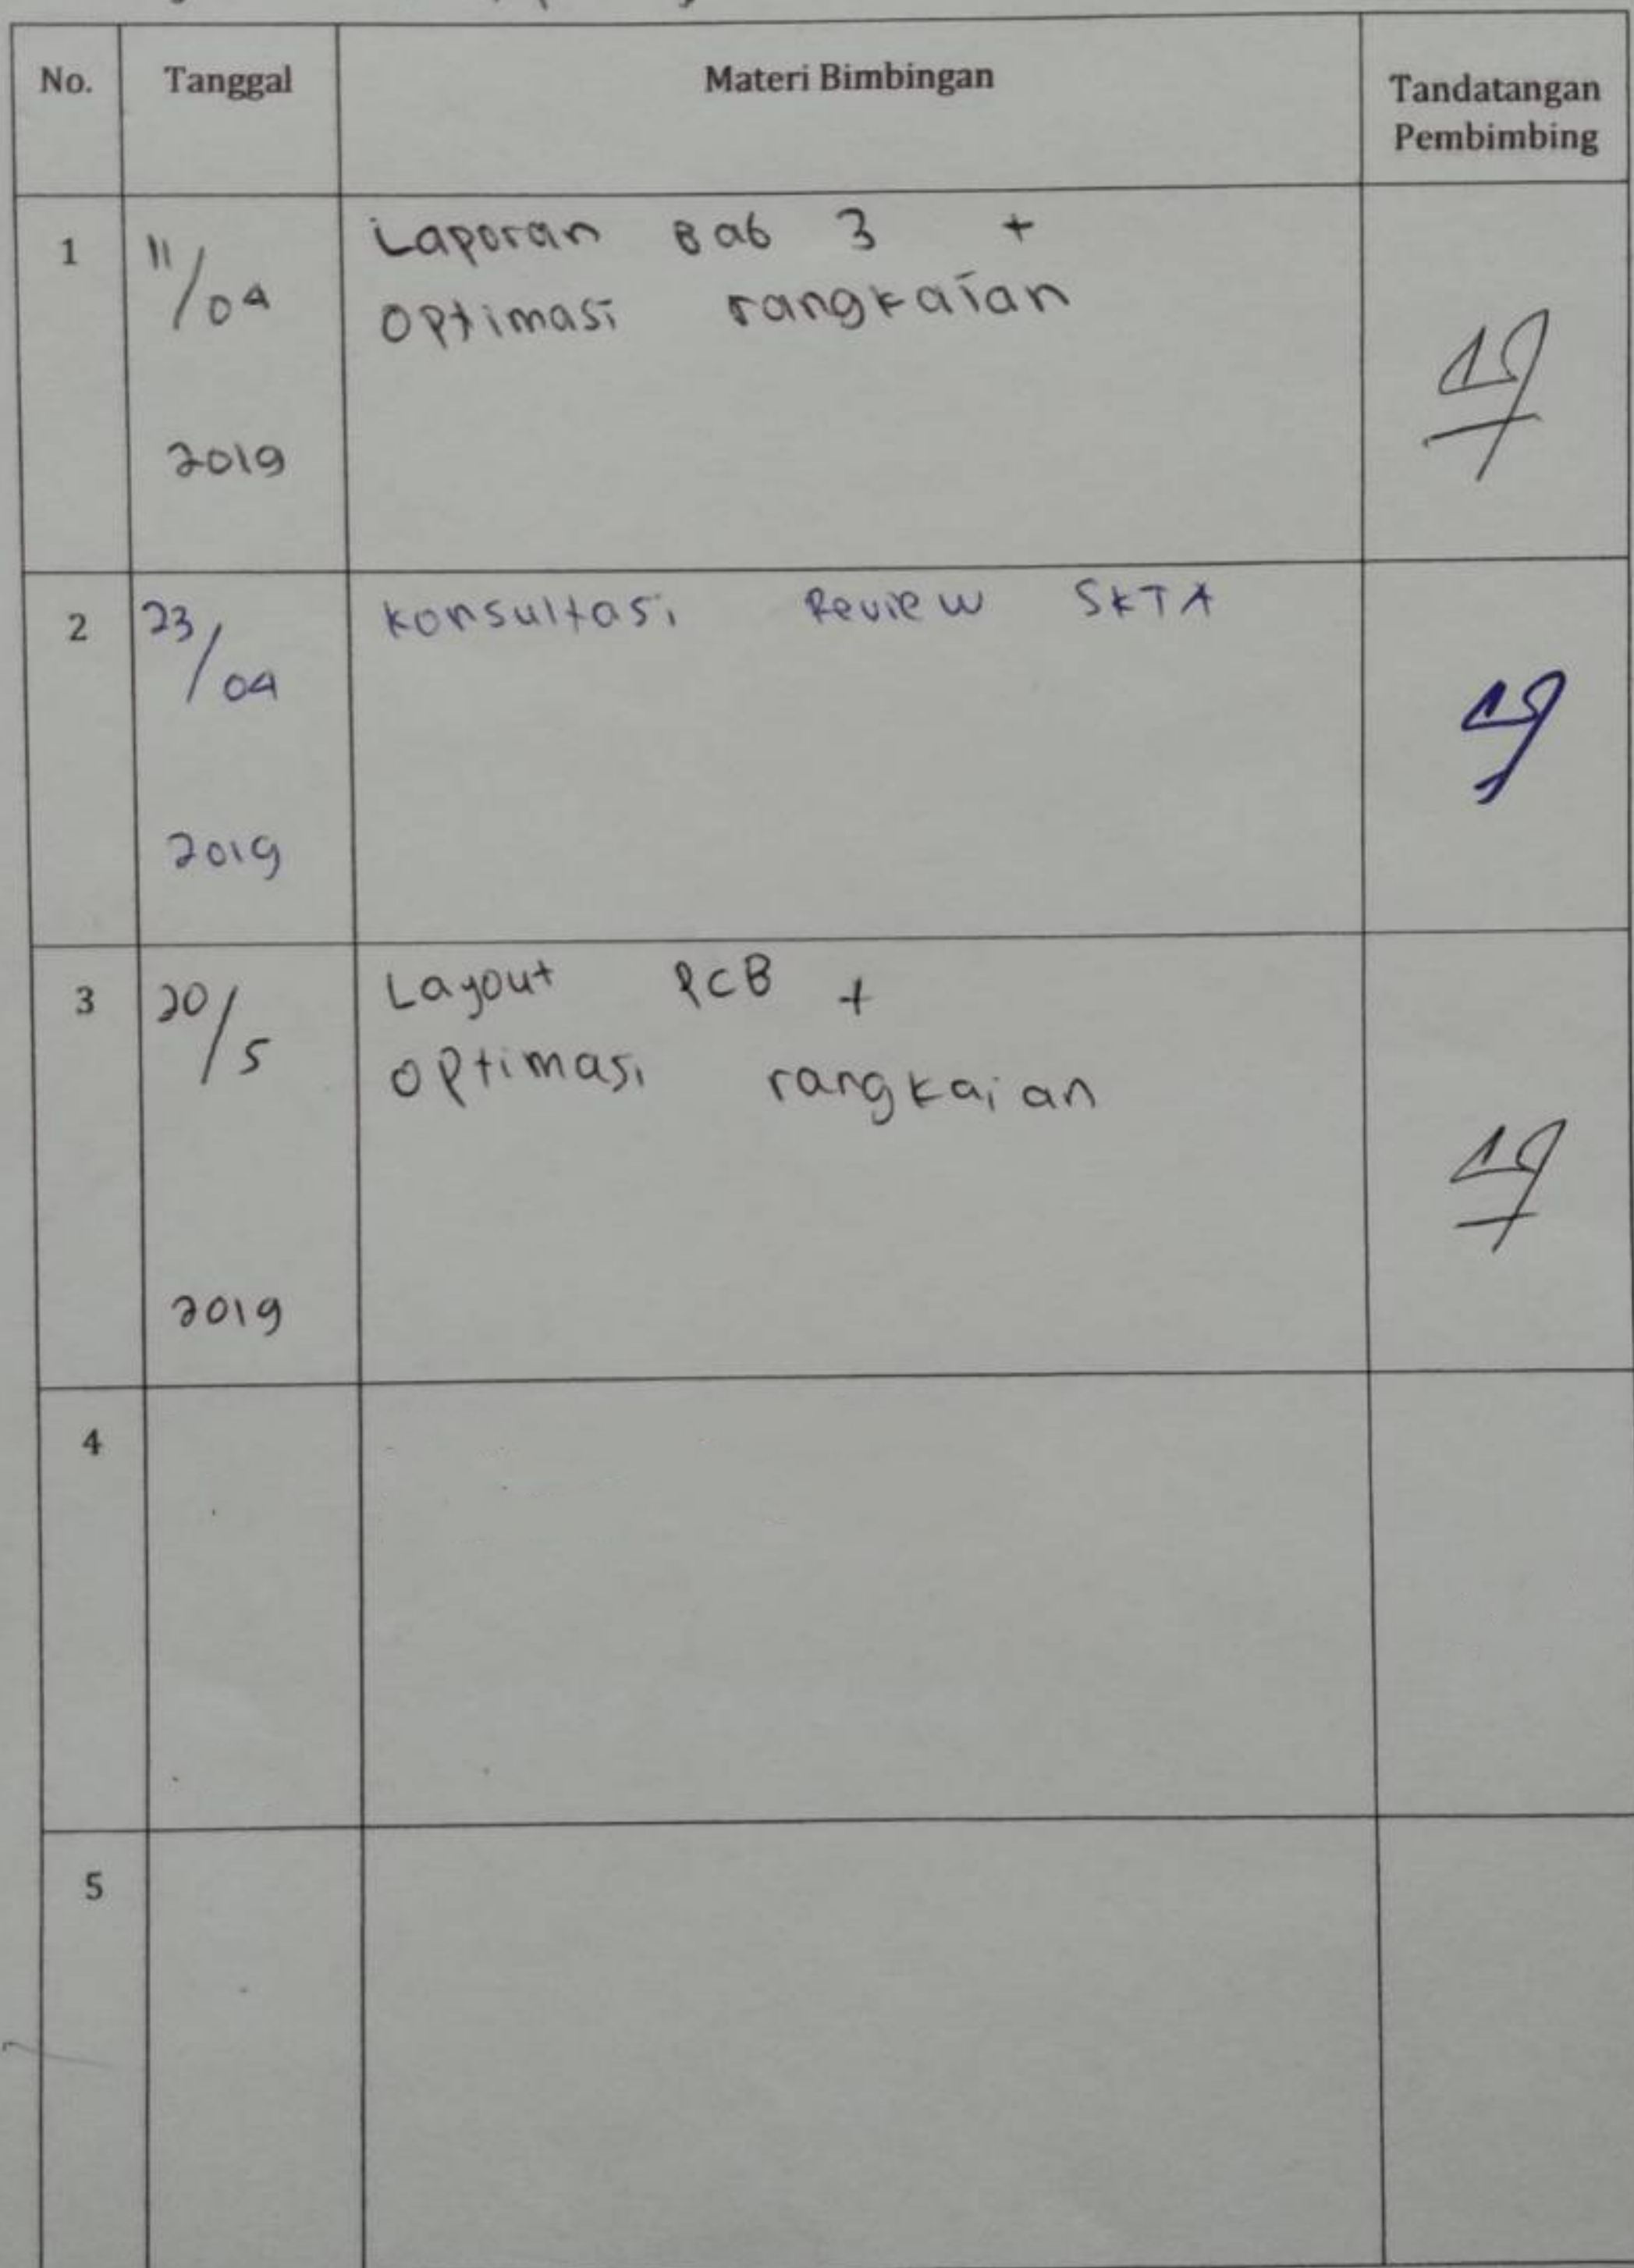 No. Tanggal Materi Bimbingan Tandatangan
Pembimbing
1 11/04 Laporan Bab 3 +
Optimasi rangkaian
2019
2 23/04 Konsultasi Review SKTA
2019
3 20/5 Layout PCB +
Optimasi rangkaian
2019
4
5